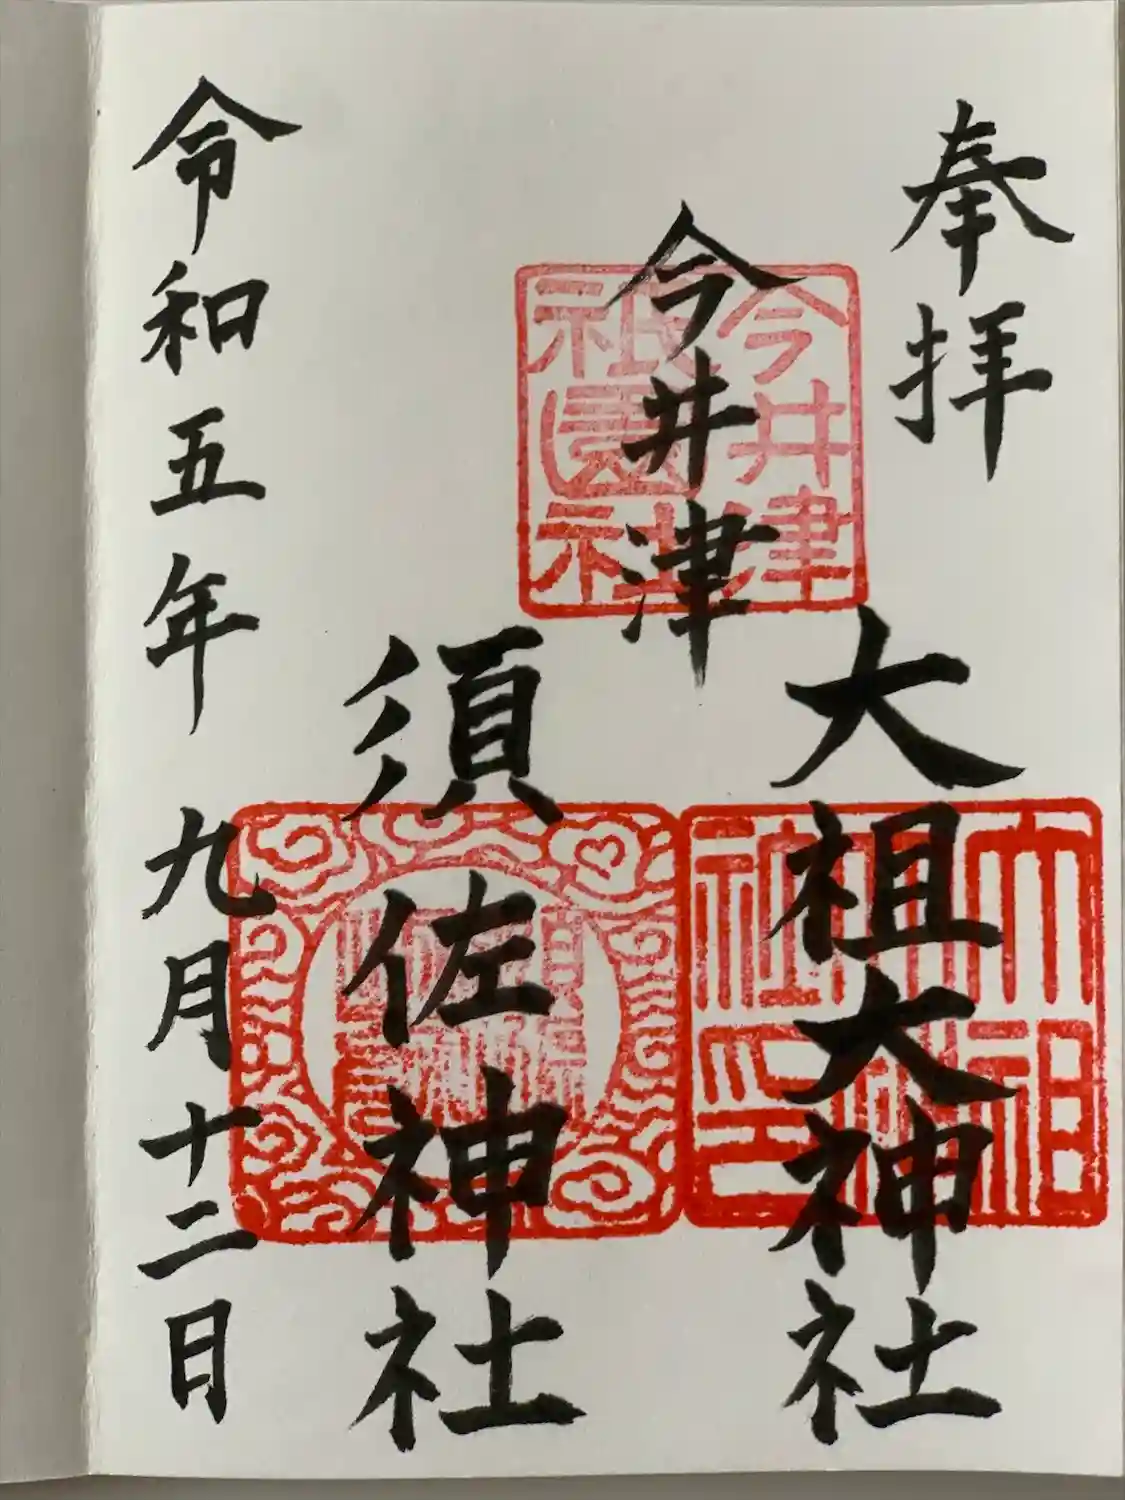 奉拝
今井津
大祖大神社
須佐神社
令和五年 九月十二日
今井津
祇園社
大祖
大神
社印